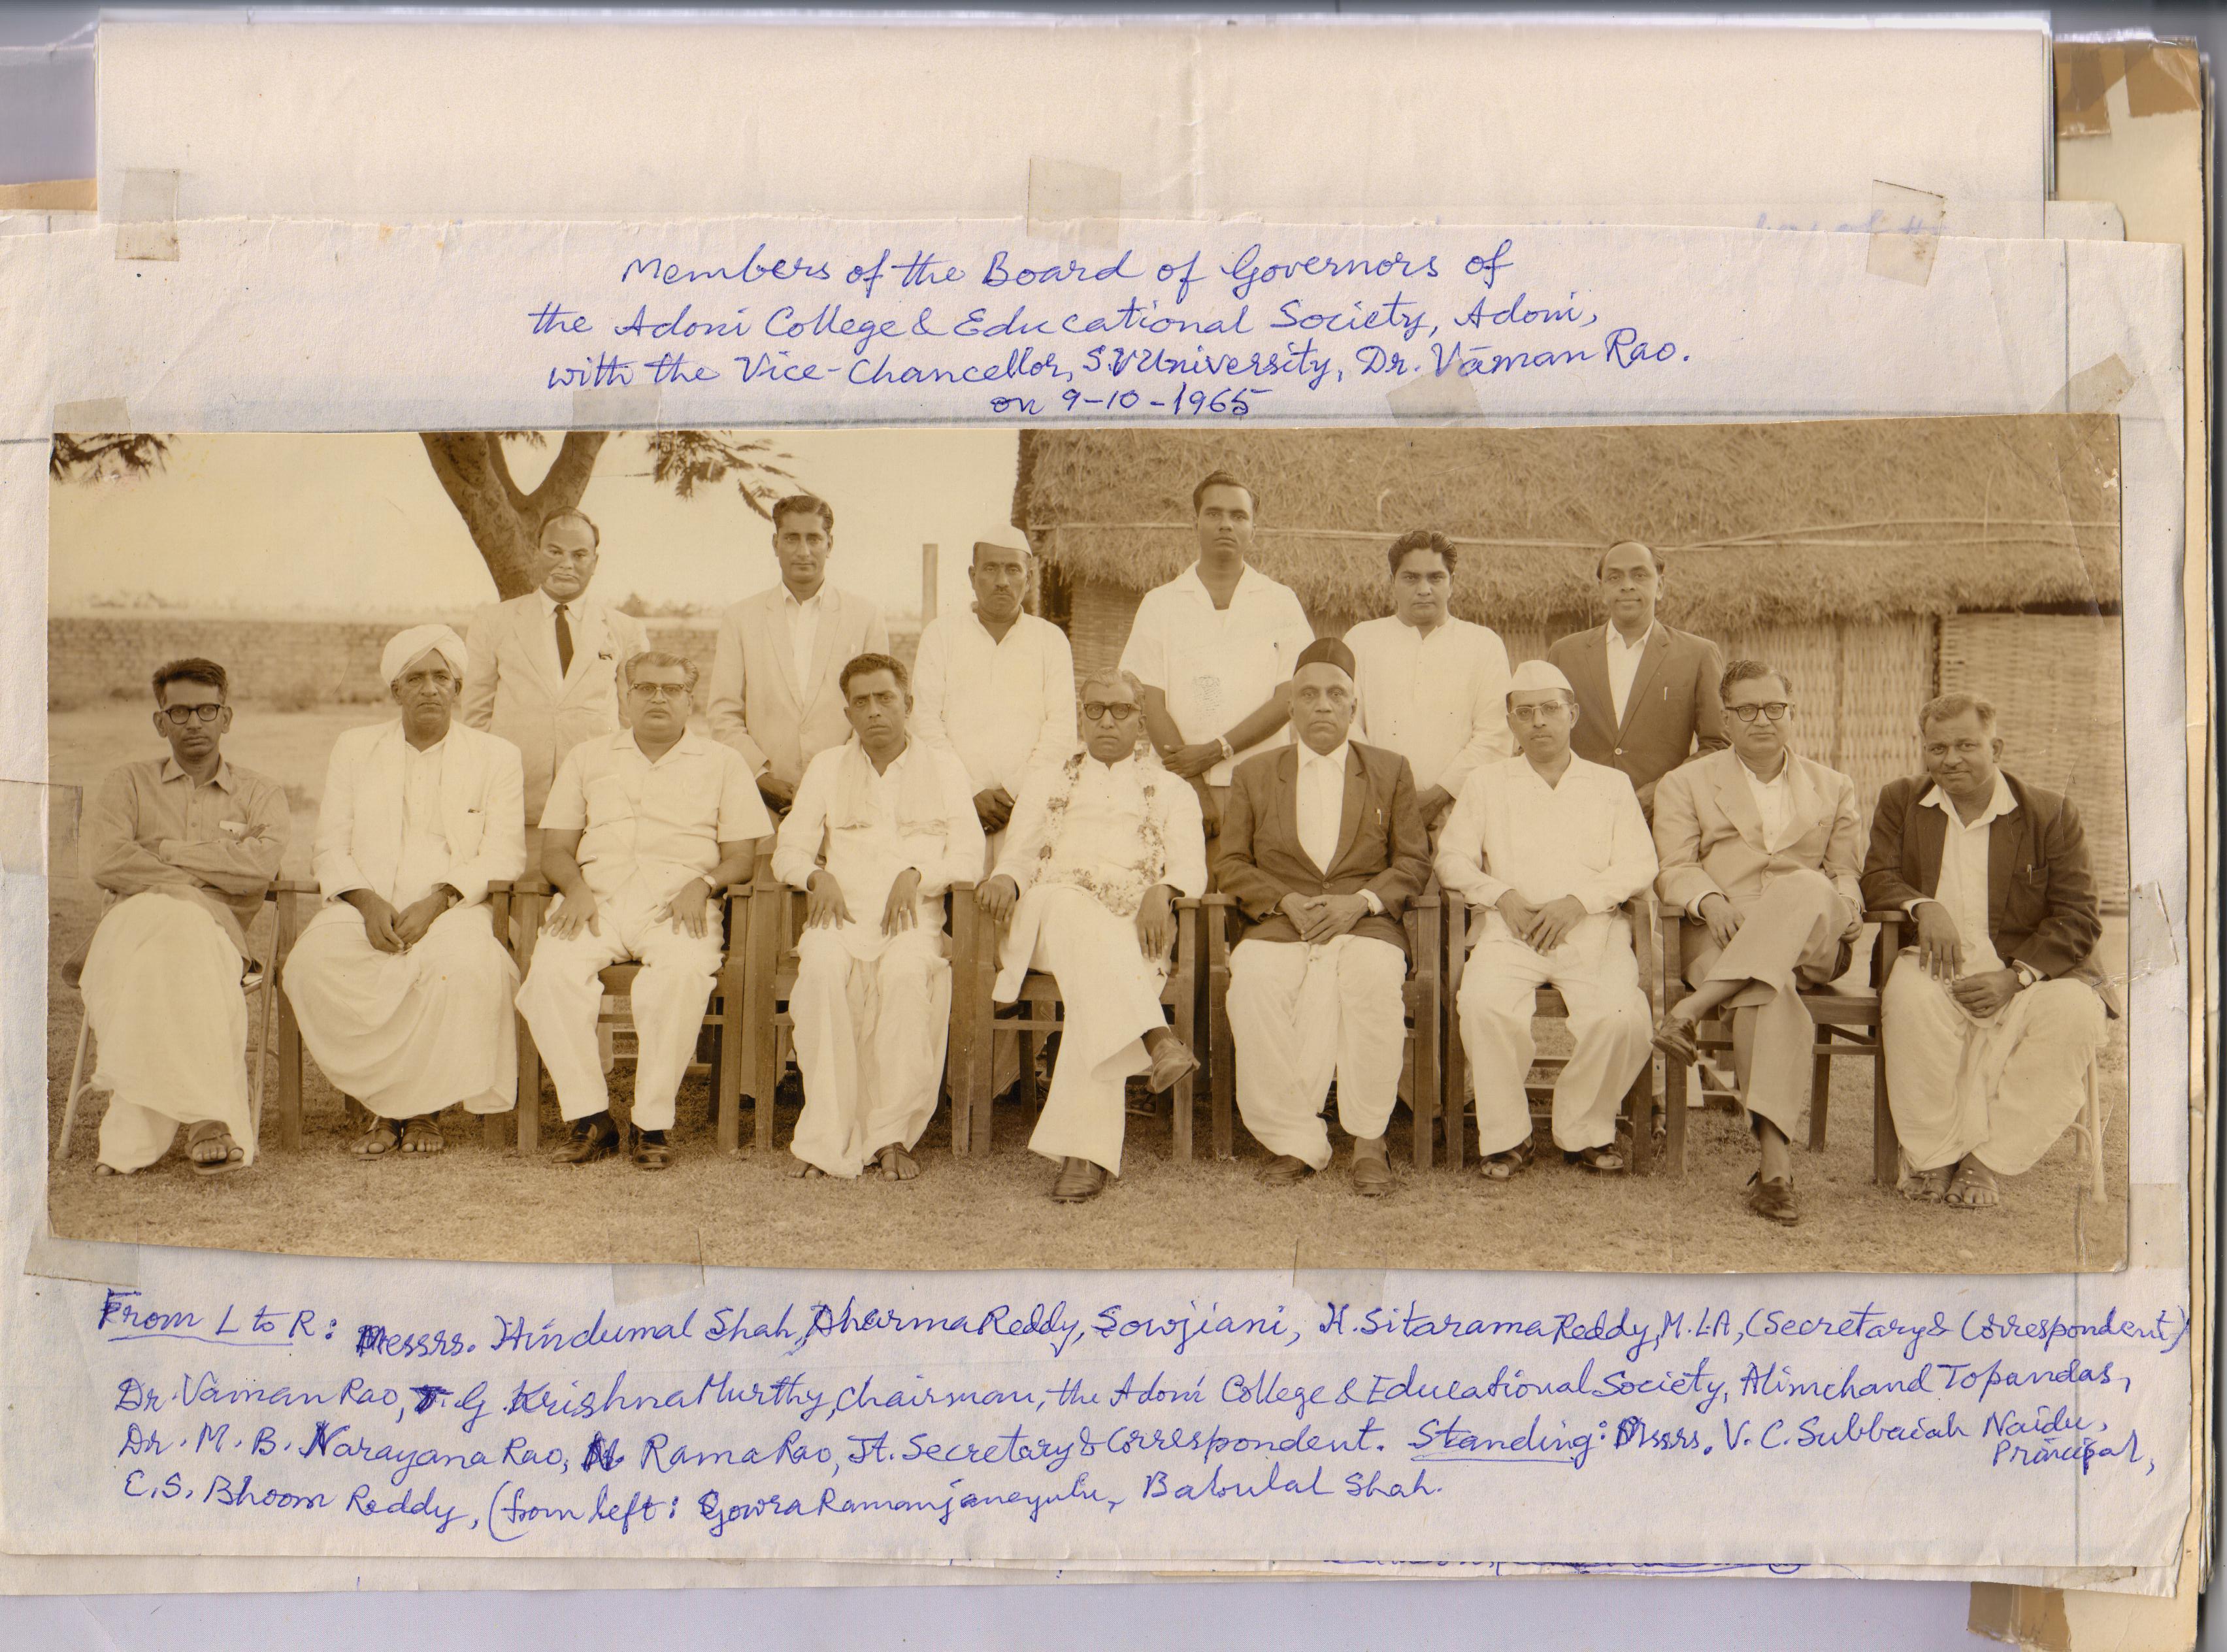 Members of the Board of Governors of
the Adoni College & Educational Society, Adoni,
with the Vice-Chancellor, S.V University, Dr. Vāman Rao.
on 9-10-1965
From L to R: Messrs. Hindumal Shah, Dharma Reddy, Sowjiani, H. Sitarama Reddy, M.LA, (Secretary & Correspondent)
Dr. Vaman Rao, T. G. Krishna Murthy, Chairman, the Adoni College & Educational Society, Alimchand Topandas,
Dr. M. B. Narayana Rao, N Rama Rao, Jt. Secretary & Correspondent. Standing: Messrs. V. C. Subbaiah Naidu,
Principal,
E.S. Bhoom Reddy, (from left: Gowra Ramanjaneyulu, Babulal Shah.